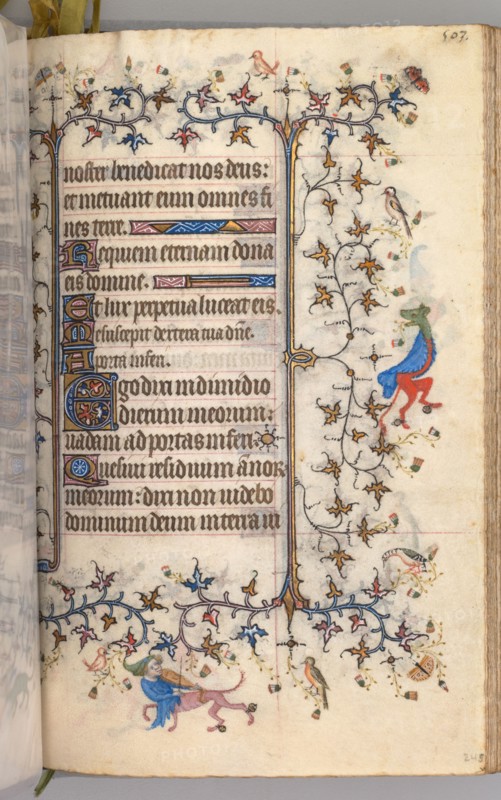 507.
noster benedicat nos deus:
et metuant eum omnes fi
nes terre.
Requiem eternam dona
eis domine.
Et lux perpetua luceat eis.
Me suscepit dextera tua dñe.
A porta inferi.
Ego dixi in dimidio
dierum meorum:
uadam ad portas inferi.
Quesiui residuum ānor
meorum: dixi non uidebo
dominum deum in terra ui
248